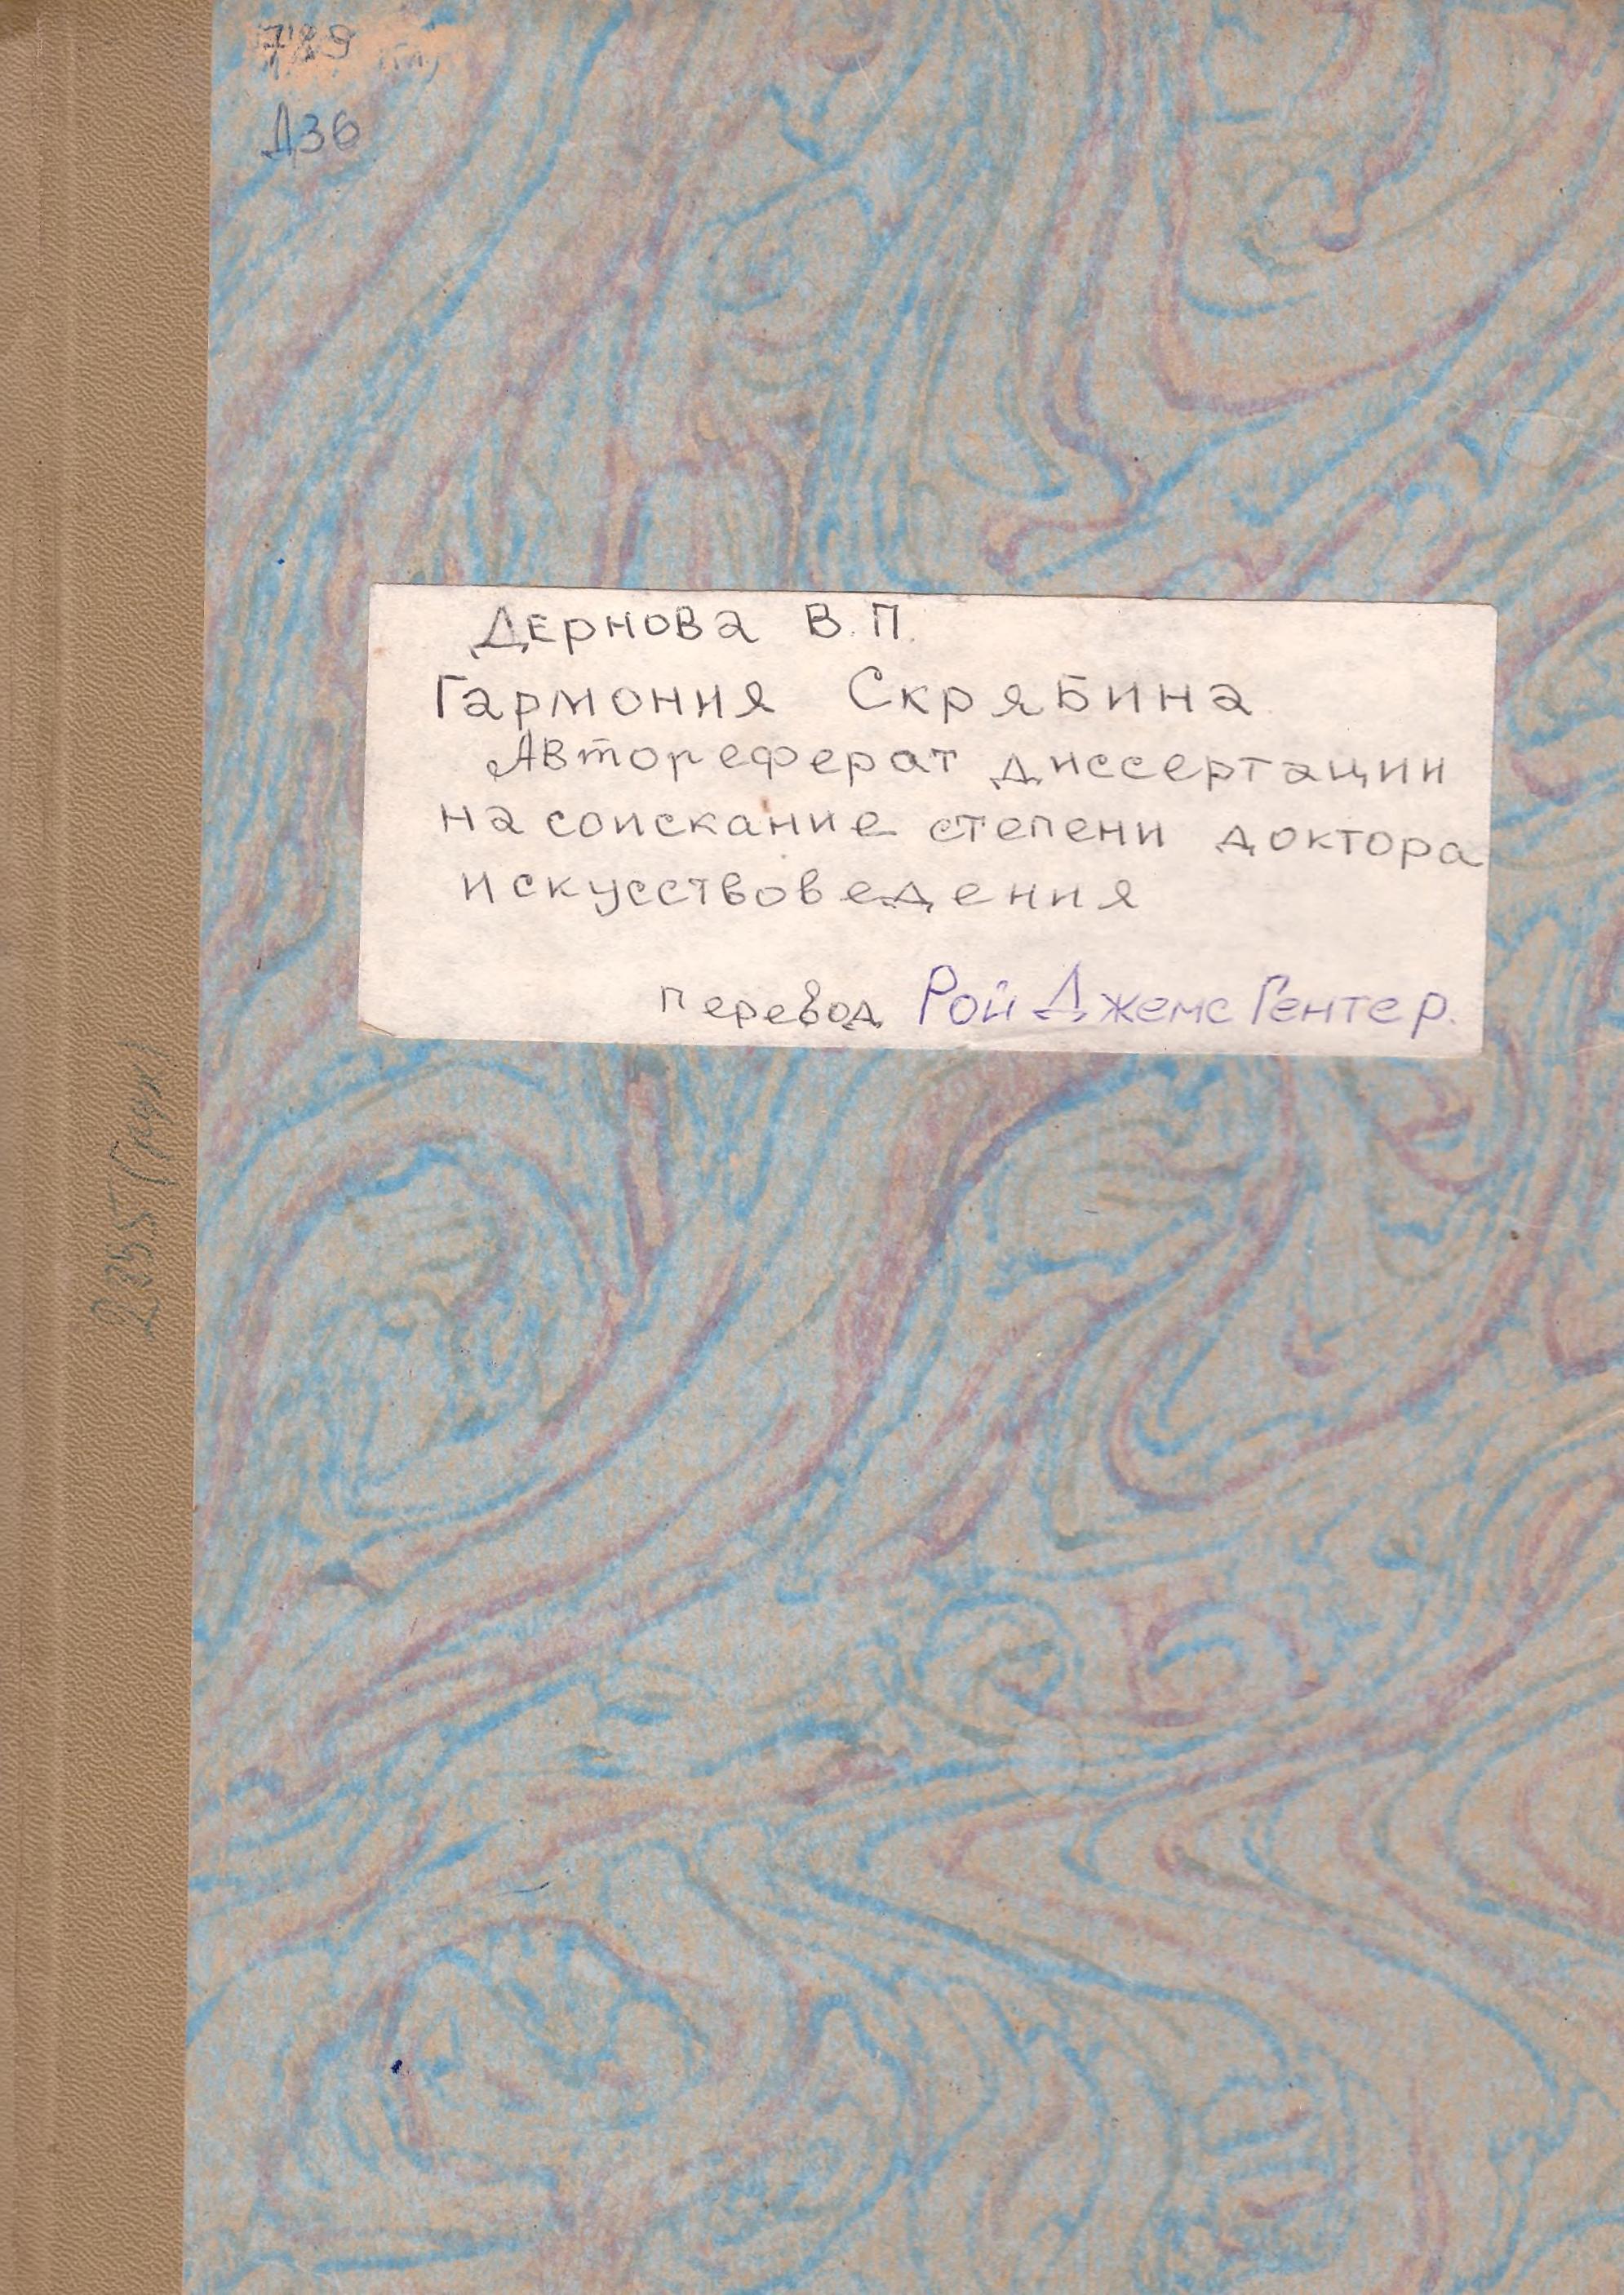 789
Д36
Дернова В.П.
Гармония Скрябина
Автореферат диссертации
на соискание степени доктора
искусствоведения
перевод Рой Джемс Гентер.